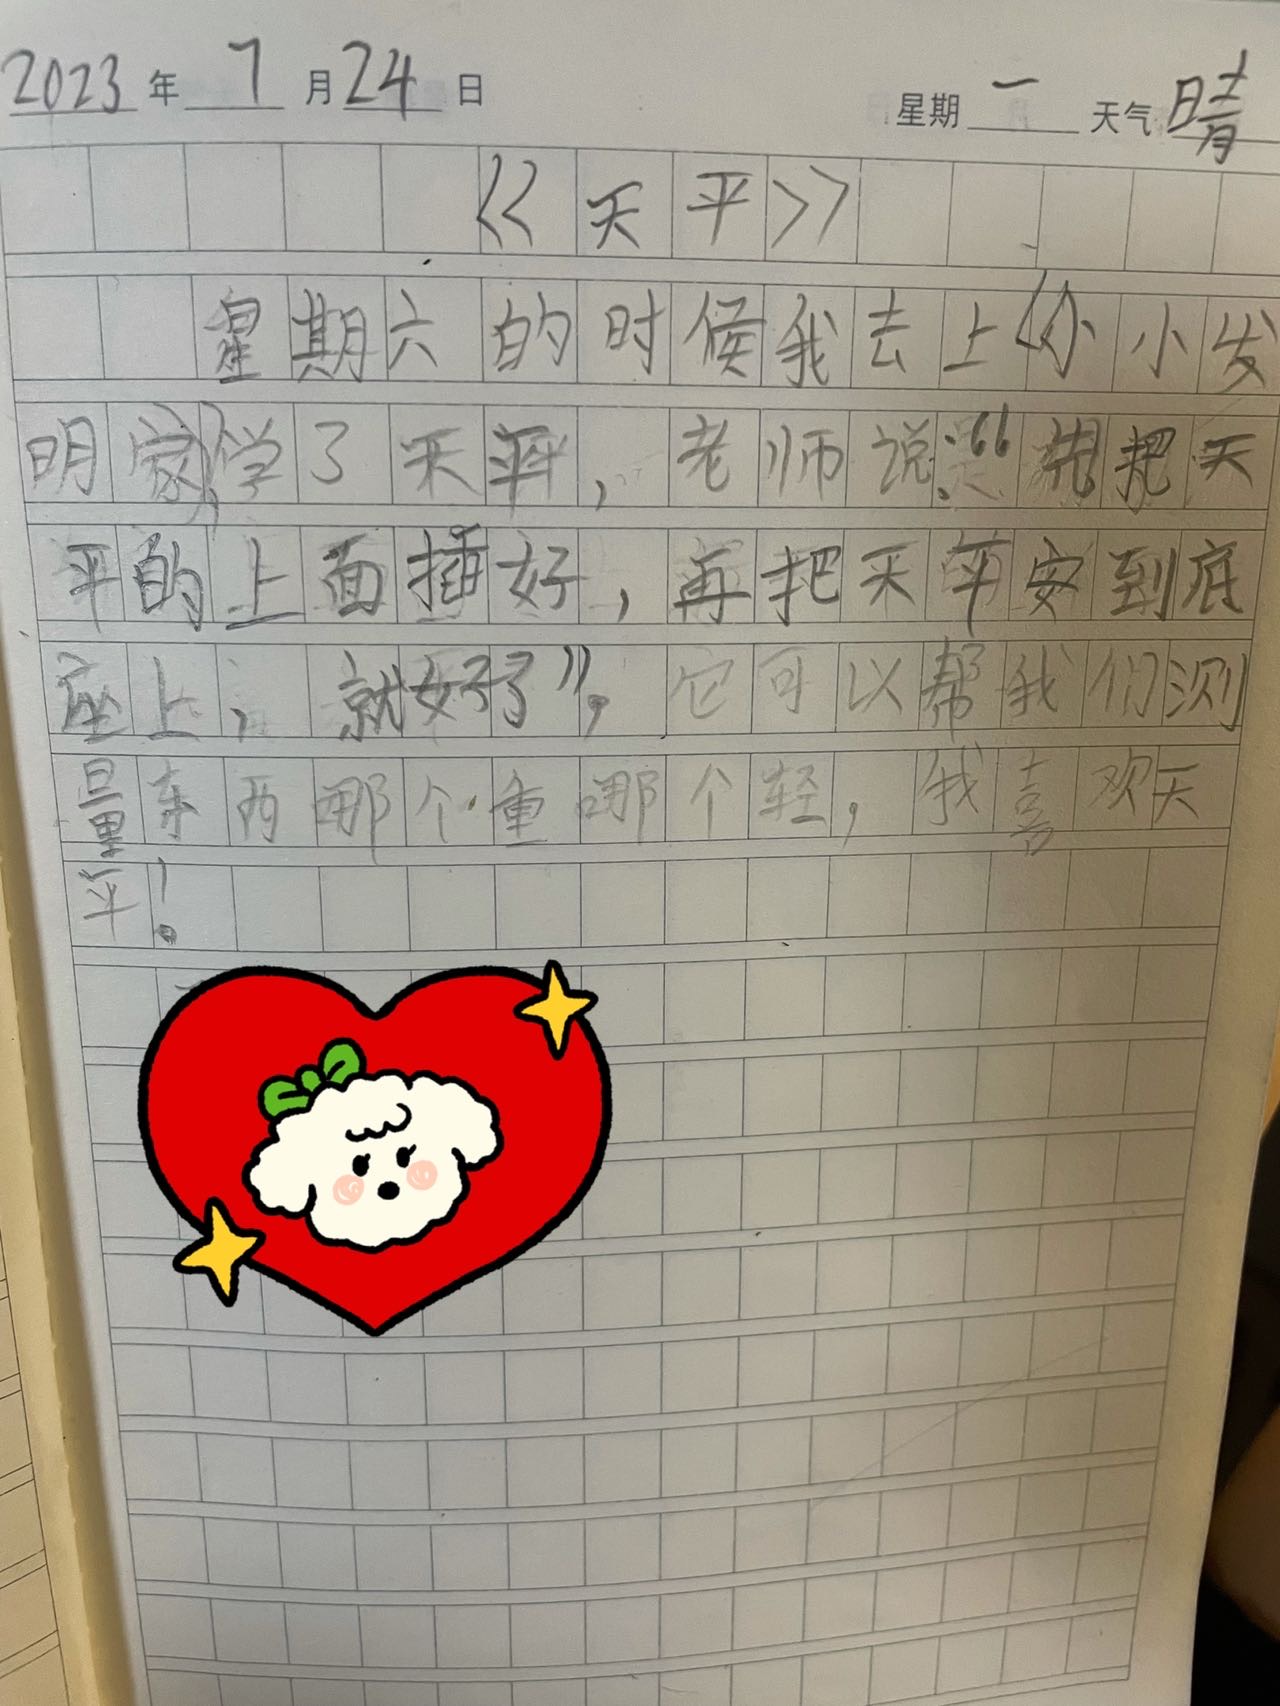 2023年7月24日 星期一 天气晴
《天平》
星期六的时候我去上《小小发
明家》学了天平，老师说：“先把天
平的上面插好，再把天平安到底
座上，就好了”，它可以帮我们测
量东西哪个重哪个轻，我喜欢天
平！